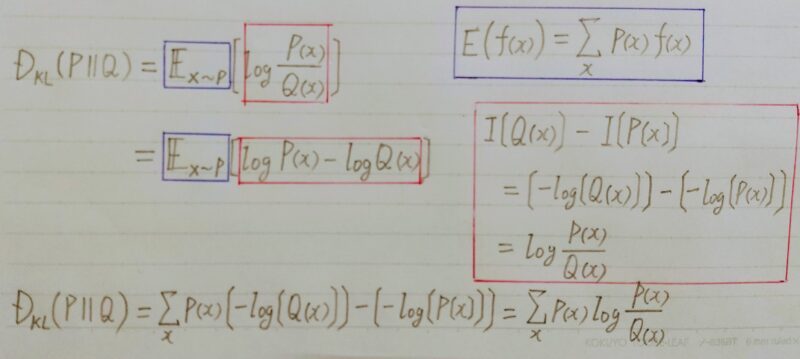 D_KL(P||Q) = 𝔼_x~P [log P(x)/Q(x)]
E(f(x)) = ∑_x P(x) f(x)
= 𝔼_x~P [log P(x) − log Q(x)]
I(Q(x)) − I(P(x))
= (−log(Q(x))) − (−log(P(x)))
= log P(x)/Q(x)
D_KL(P||Q) = ∑_x P(x) (−log(Q(x))) − (−log(P(x))) = ∑_x P(x) log P(x)/Q(x)